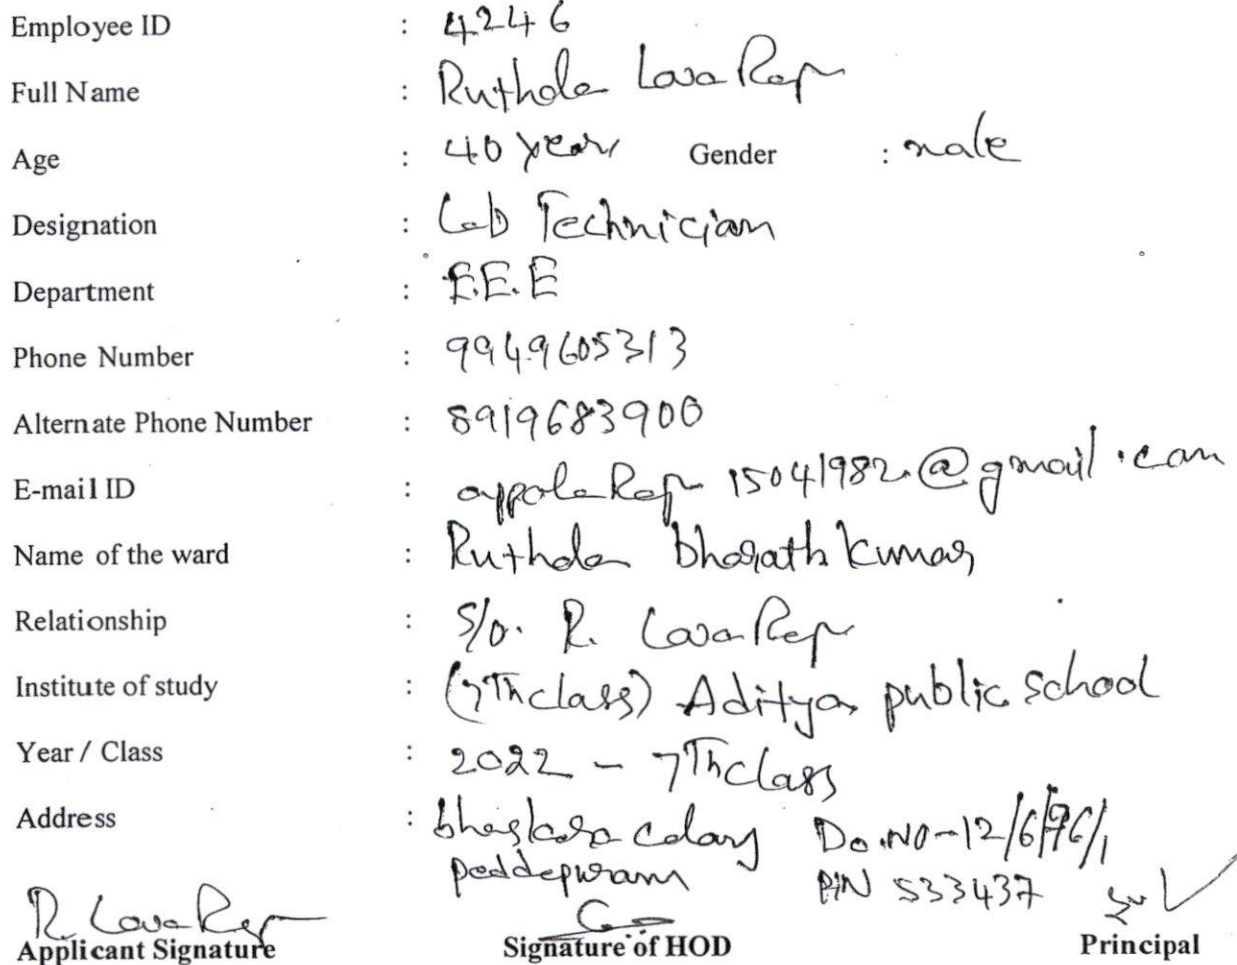 Employee ID : 4246
Full Name : Ruthala Lava Raju
Age : 40 years Gender : male
Designation : Lab Technician
Department : E.E.E
Phone Number : 9949605313
Alternate Phone Number : 8919683900
E-mail ID : appalaRaju15041982@gmail.com
Name of the ward : Ruthala bharath kumar
Relationship : S/o. R. Lava Raju
Institute of study : (7Th class) Aditya public school
Year / Class : 2022 - 7Th class
Address : bhaskara colany Do.NO-12/6/ /1
peddapuram PIN 533437
R. Lava Raju
Applicant Signature Signature of HOD Principal